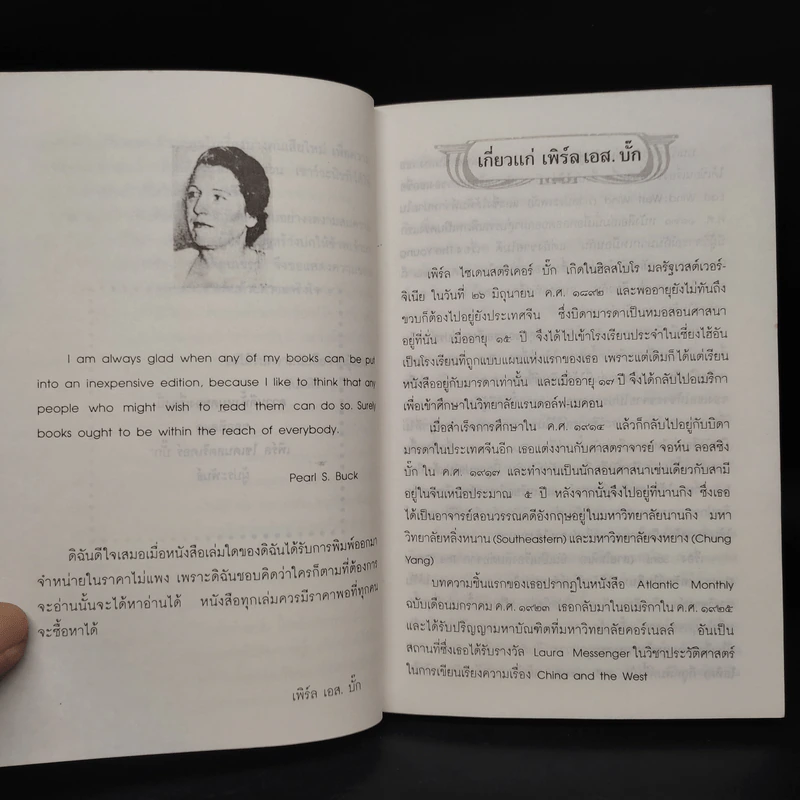 I am always glad when any of my books can be put
into an inexpensive edition, because I like to think that any
people who might wish to read them can do so. Surely
books ought to be within the reach of everybody.
Pearl S. Buck
ดิฉันดีใจเสมอเมื่อหนังสือเล่มใดของดิฉันได้รับการพิมพ์ออกมา
จำหน่ายในราคาไม่แพง เพราะดิฉันชอบคิดว่าใครก็ตามที่ต้องการ
จะอ่านนั้นจะได้หาอ่านได้ หนังสือทุกเล่มควรมีราคาพอที่ทุกคน
จะซื้อหาได้
เพิร์ล เอส. บั๊ก
เกี่ยวแก่ เพิร์ล เอส. บั๊ก
เพิร์ล ไซเดนสตริเคอร์ บั๊ก เกิดในฮิลสโบโร มลรัฐเวสต์เวอร์-
จิเนีย ในวันที่ ๒๖ มิถุนายน ค.ศ. ๑๘๙๒ และพออายุยังไม่ทันถึง
ขวบก็ต้องไปอยู่ยังประเทศจีน ซึ่งบิดามารดาเป็นหมอสอนศาสนา
อยู่ที่นั่น เมื่ออายุ ๑๕ ปี จึงได้ไปเข้าโรงเรียนประจำในเซี่ยงไฮ้อัน
เป็นโรงเรียนที่ถูกแบบแผนแห่งแรกของเธอ เพราะแต่เดิมก็ได้แต่เรียน
หนังสืออยู่กับมารดาเท่านั้น และเมื่ออายุ ๑๗ ปี จึงได้กลับไปอเมริกา
เพื่อเข้าศึกษาในวิทยาลัยแรนดอล์ฟ-เมคอน
เมื่อสำเร็จการศึกษาใน ค.ศ. ๑๙๑๔ แล้วก็กลับไปอยู่กับบิดา
มารดาในประเทศจีนอีก เธอแต่งงานกับศาสตราจารย์ จอห์น ลอสซิง
บั๊ก ใน ค.ศ. ๑๙๑๗ และทำงานเป็นนักสอนศาสนาเช่นเดียวกับสามี
อยู่ในจีนเหนือประมาณ ๕ ปี หลังจากนั้นจึงไปอยู่ที่นานกิง ซึ่งเธอ
ได้เป็นอาจารย์สอนวรรณคดีอังกฤษอยู่ในมหาวิทยาลัยนานกิง มหา
วิทยาลัยหลิ่งหนาน (Southeastern) และมหาวิทยาลัยจงหยาง (Chung
Yang)
บทความชิ้นแรกของเธอปรากฏในหนังสือ Atlantic Monthly
ฉบับเดือนมกราคม ค.ศ. ๑๙๒๓ เธอกลับมาในอเมริกาใน ค.ศ. ๑๙๒๕
และได้รับปริญญามหาบัณฑิตที่มหาวิทยาลัยคอร์เนลล์ อันเป็น
สถานที่ซึ่งเธอได้รับรางวัล Laura Messenger ในวิชาประวัติศาสตร์
ในการเขียนเรียงความเรื่อง China and the West